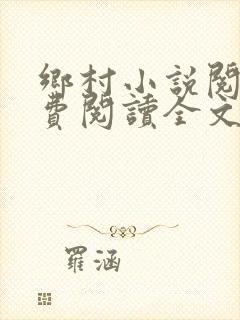 鄉村小說閱
費閱讀全文
羅涵